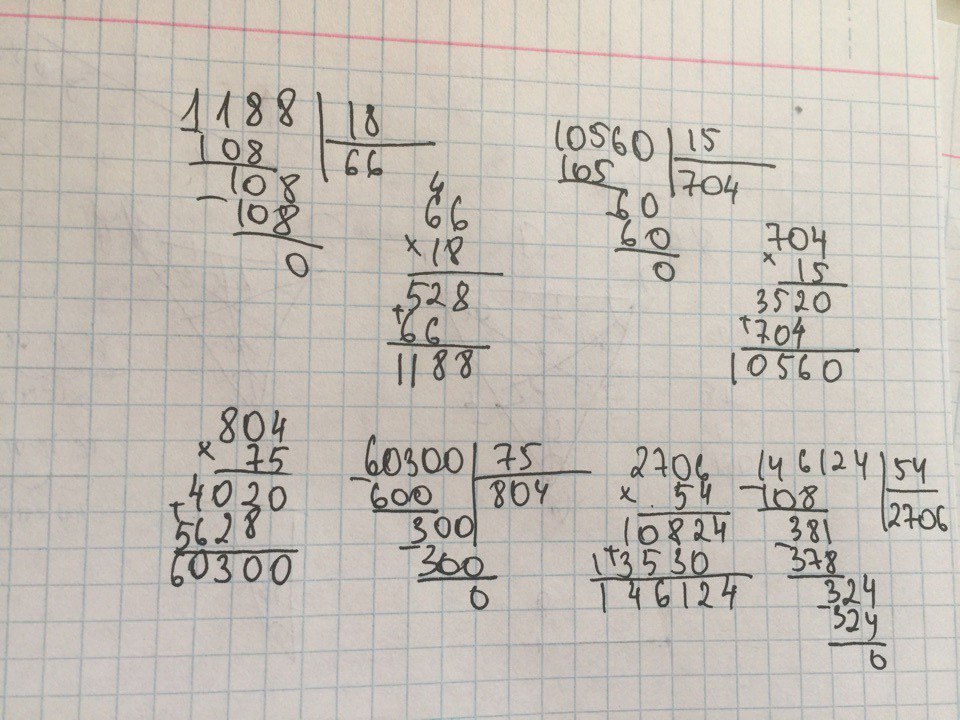 1188 18
108 66
108
- 108
0
4
66
× 18
528
+ 66
1188
10560 15
105 704
60
60
0
704
× 15
3520
+ 704
10560
804
× 75
+ 4020
5628
60300
60300 75
- 600 804
300
- 300
0
2706
× 54
10824
+ 13530
146124
146124 54
- 108 2706
381
- 378
324
- 324
0